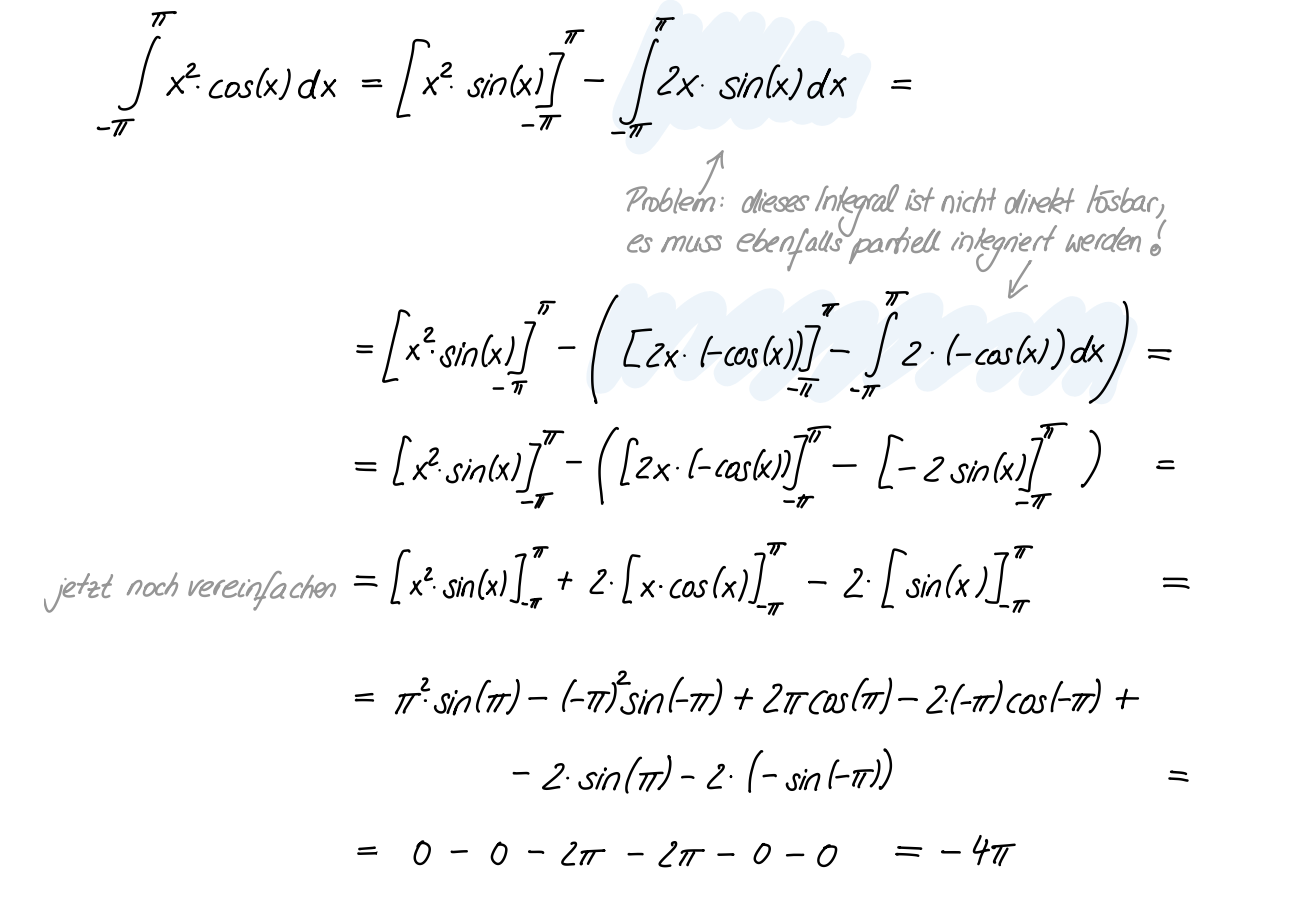 ∫_{-π}^{π} x²· cos(x) dx = [x²· sin(x)]_{-π}^{π} − ∫_{-π}^{π} 2x· sin(x) dx =
Problem: dieses Integral ist nicht direkt lösbar,
es muss ebenfalls partiell integriert werden!
= [x²· sin(x)]_{-π}^{π} − ([2x· (-cos(x))]_{-π}^{π} − ∫_{-π}^{π} 2 · (-cos(x)) dx) =
= [x²· sin(x)]_{-π}^{π} − ([2x· (-cos(x))]_{-π}^{π} − [-2 sin(x)]_{-π}^{π}) =
jetzt noch vereinfachen = [x²· sin(x)]_{-π}^{π} + 2· [x· cos(x)]_{-π}^{π} − 2· [sin(x)]_{-π}^{π} =
= π²· sin(π) − (-π)² sin(-π) + 2π cos(π) − 2·(-π) cos(-π) +
− 2· sin(π) − 2· (-sin(-π)) =
= 0 − 0 − 2π − 2π − 0 − 0 = −4π